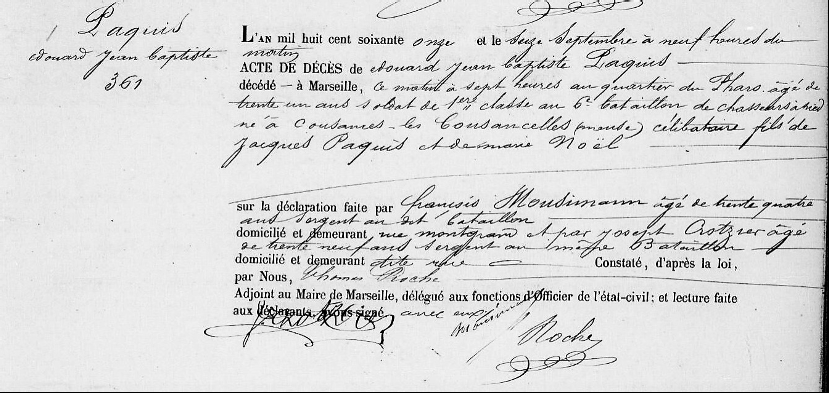 Paquis
edouard Jean Baptiste
361
L'AN mil huit cent soixante onze et le Seize Septembre à neuf heures du
matin
ACTE DE DÉCÈS de edouard Jean Baptiste Paquis
décédé – à Marseille, ce matin à sept heures au quartier du Pharo, âgé de
trente un ans soldat de 1ere classe au 6e bataillon de chasseurs à pied
né à Cousances-les Cousancelles (meuse) célibataire fils de
Jacques Paquis et de marie Noël
sur la déclaration faite par françois Mousimann âgé de trente quatre
ans sergent au dit bataillon
domicilié et demeurant, rue montgrand et par joseph Crozier âgé
de trente neuf ans sergent au même Bataillon
domicilié et demeurant dite rue Constaté, d'après la loi,
par Nous, Thomas Roche
Adjoint au Maire de Marseille, délégué aux fonctions d'Officier de l'état-civil; et lecture faite
aux déclarants, avons signé avec eux
Roche